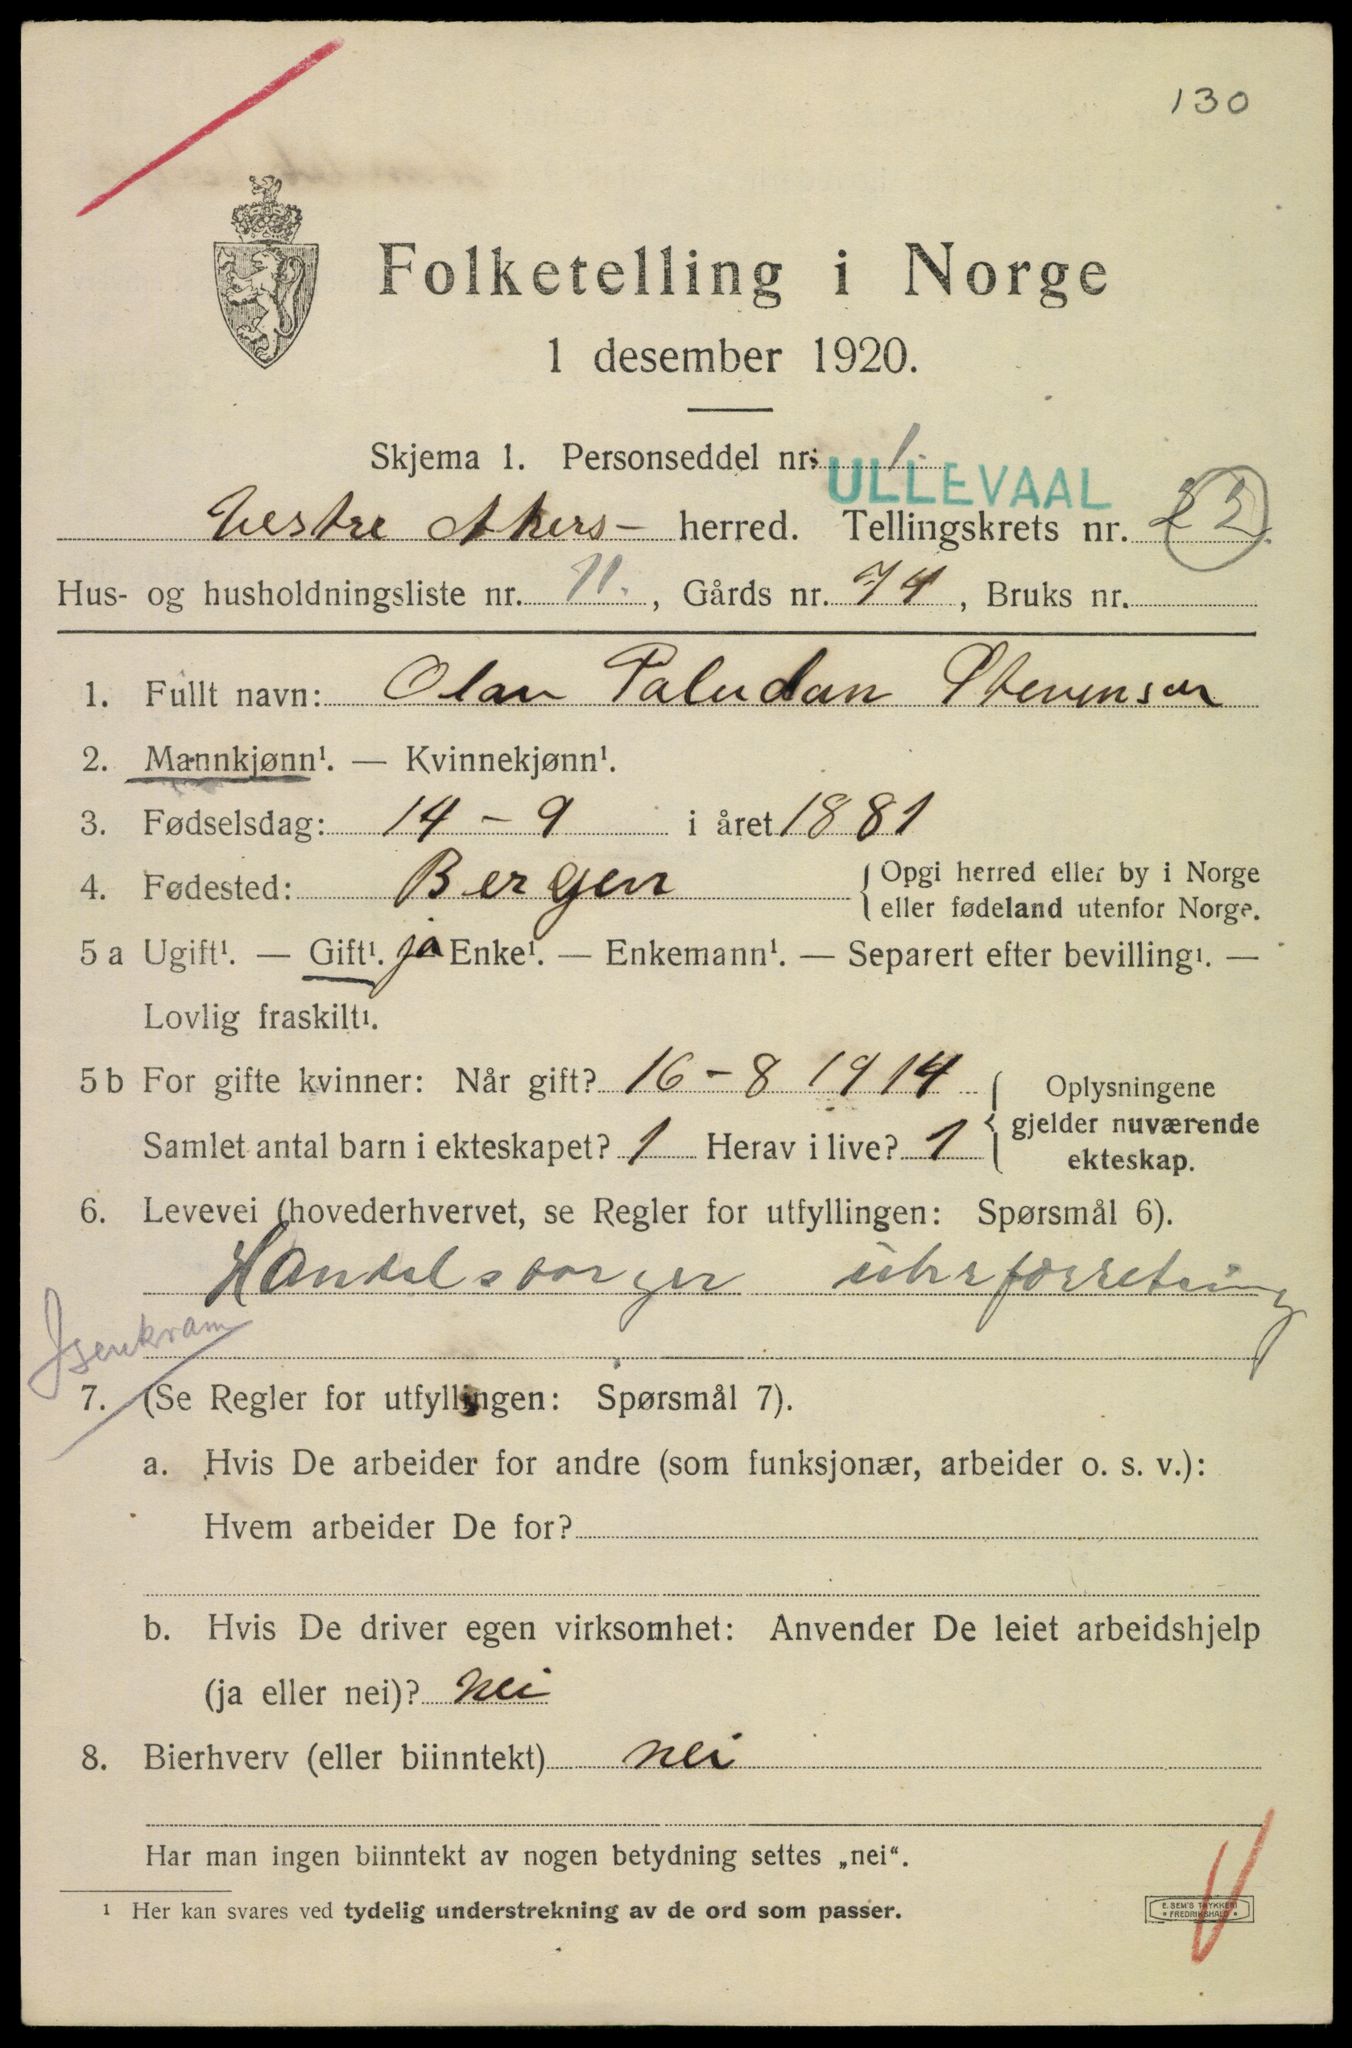 130
Folketelling i Norge
1 desember 1920.
Skjema 1. Personseddel nr. 1.
ULLEVAAL
Vestre Akers- herred. Tellingskrets nr. 22.
Hus- og husholdningsliste nr. 11., Gårds nr. 74, Bruks nr.
1. Fullt navn: Olav Paludan Stevenson
2. Mannkjønn¹. — Kvinnekjønn¹.
3. Fødselsdag: 14 - 9 i året 1881
4. Fødested: Bergen { Opgi herred eller by i Norge
eller fødeland utenfor Norge.
5 a Ugift¹. — Gift¹. ja Enke¹. — Enkemann¹. — Separert efter bevilling¹. —
Lovlig fraskilt¹.
5 b For gifte kvinner: Når gift? 16 - 8 1914 { Oplysningene
gjelder nuværende
ekteskap.
Samlet antal barn i ekteskapet? 1 Herav i live? 1
6. Levevei (hovederhvervet, se Regler for utfyllingen: Spørsmål 6).
Handelsborger
Isenkram
7. (Se Regler for utfyllingen: Spørsmål 7).
a. Hvis De arbeider for andre (som funksjonær, arbeider o. s. v.):
Hvem arbeider De for?
b. Hvis De driver egen virksomhet: Anvender De leiet arbeidshjelp
(ja eller nei)? nei
8. Bierhverv (eller biinntekt) nei
Har man ingen biinntekt av nogen betydning settes „nei“.
¹ Her kan svares ved tydelig understrekning av de ord som passer.
E. SEM'S TRYKKERI
FREDRIKSHALD